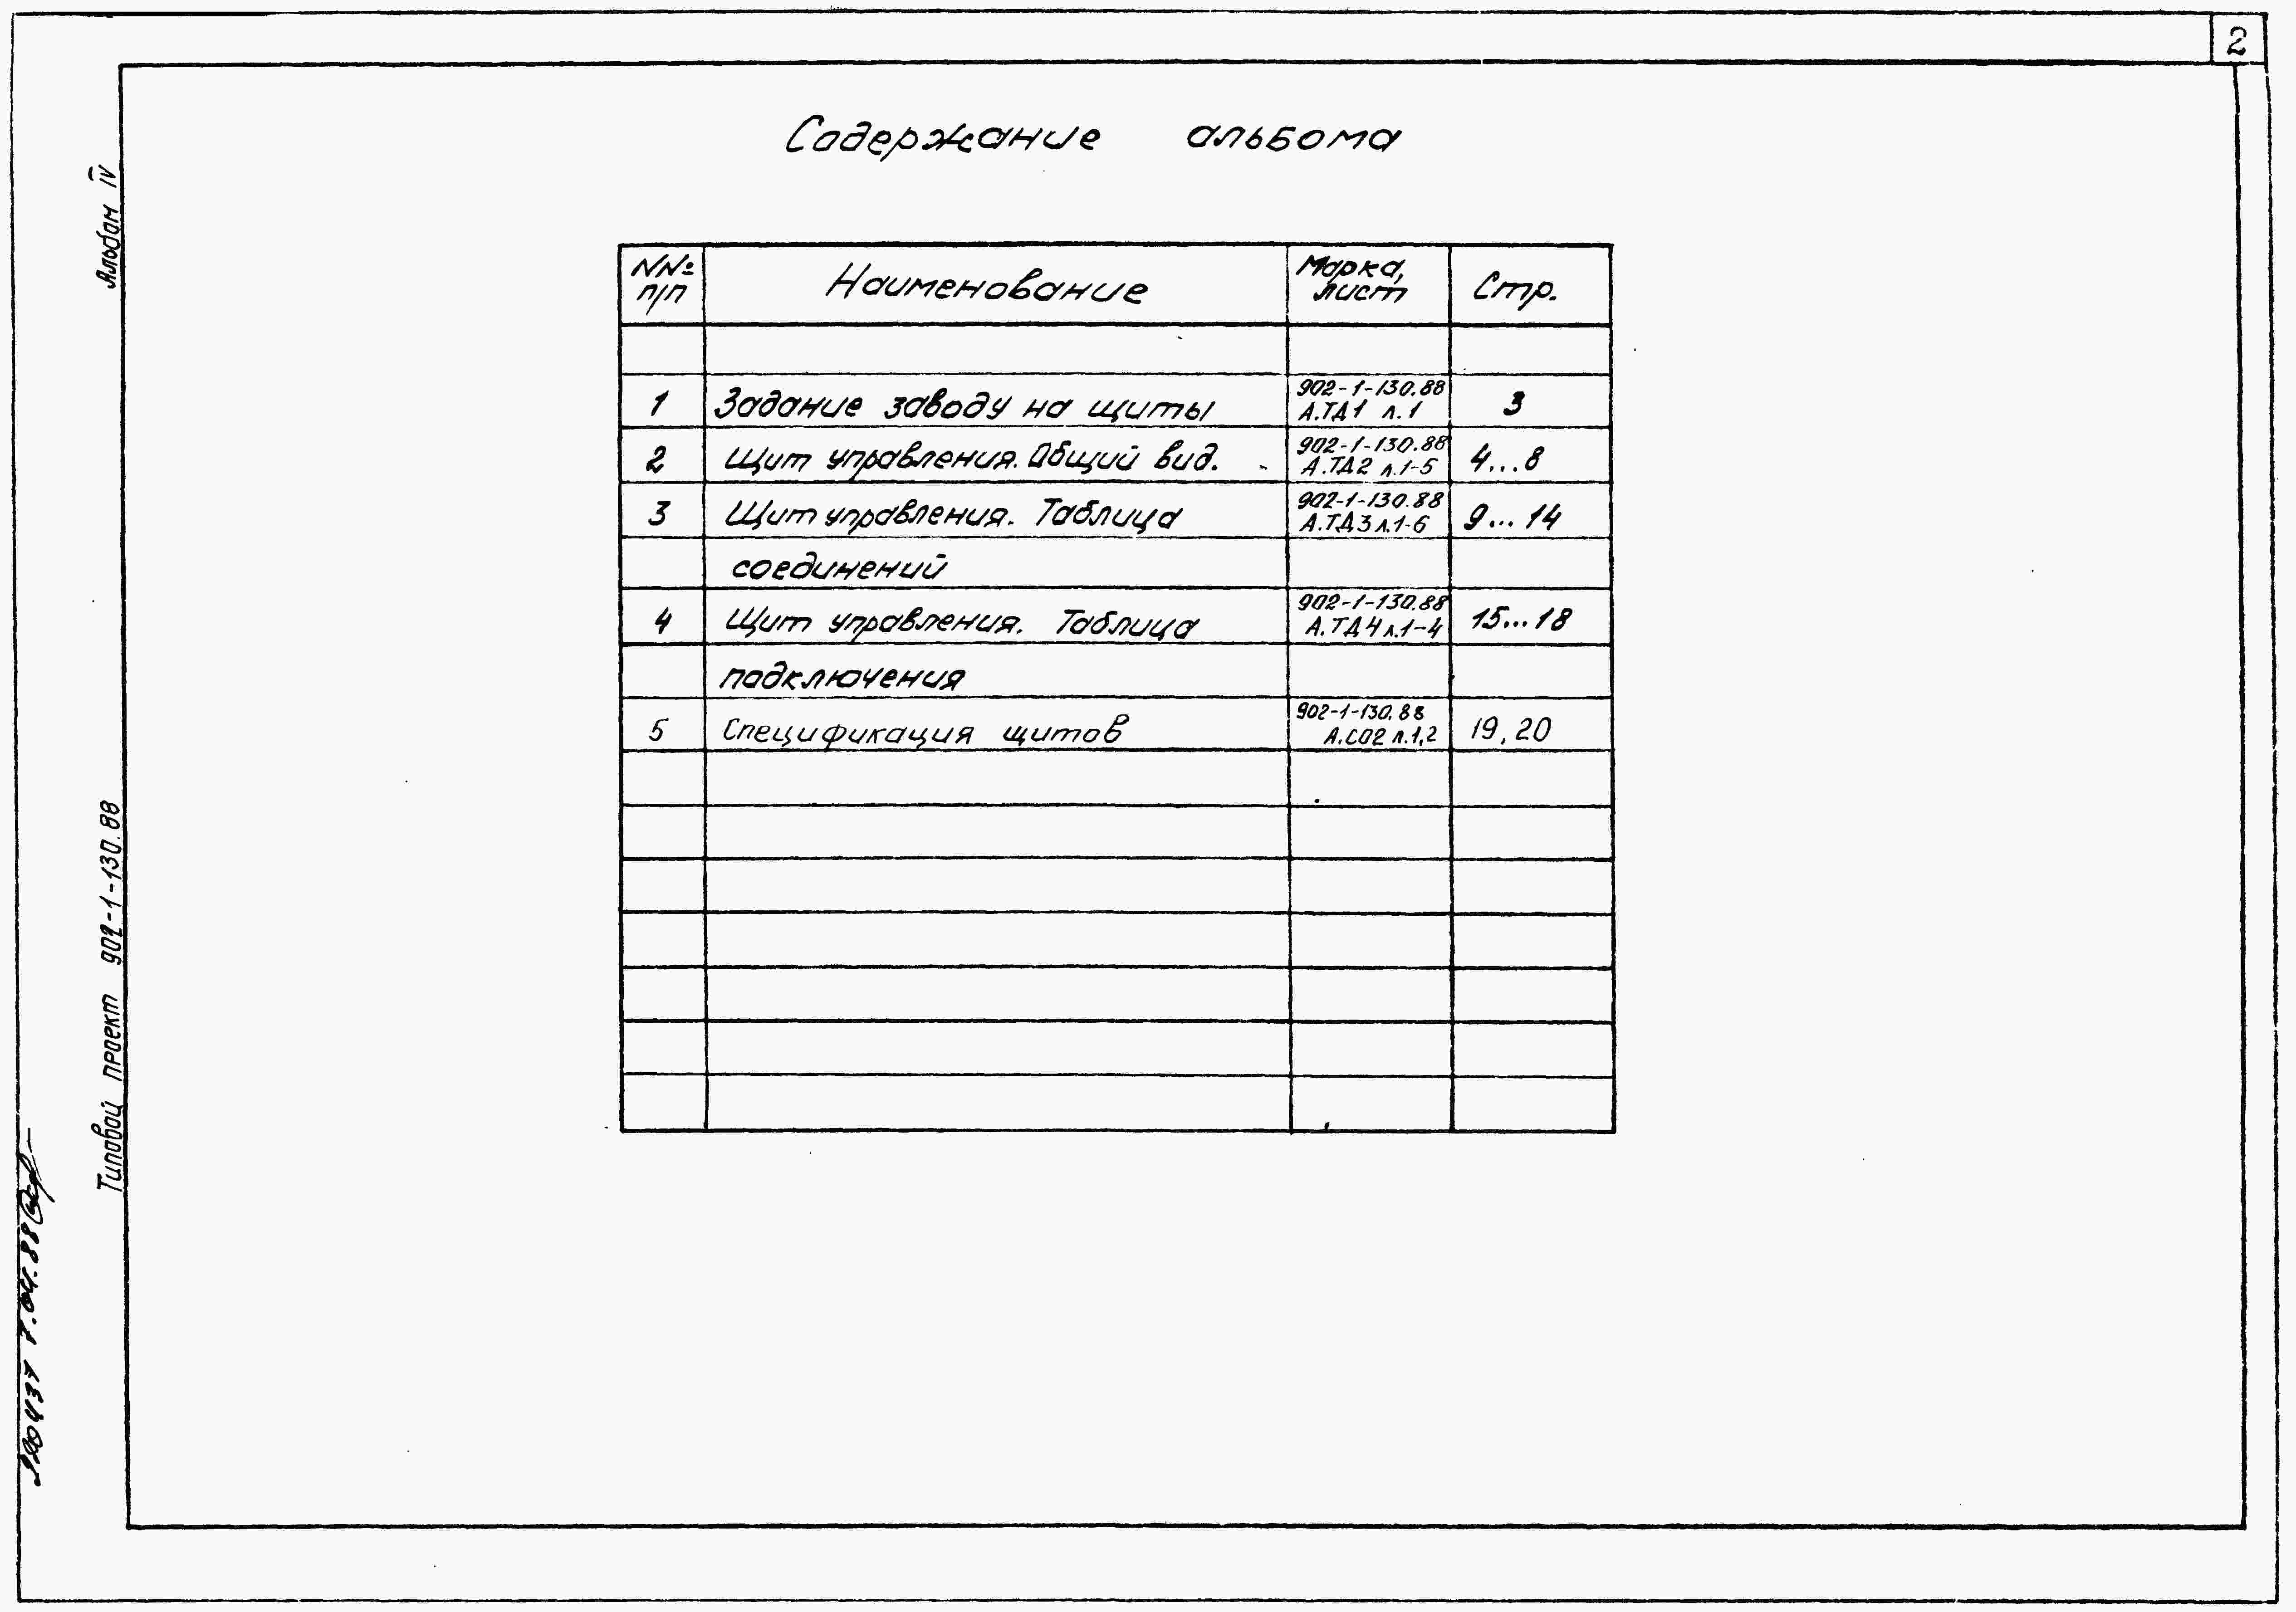 2
Содержание альбома
Альбом IV
Типовой проект 902-1-130.88
NNº п/п Наименование Марка, лист Стр.
1 Задание заводу на щиты 902-1-130.88 А.ТД1 л.1 3
2 Щит управления. Общий вид. 902-1-130.88 А.ТД2 л.1-5 4...8
3 Щит управления. Таблица 902-1-130.88 А.ТД3 л.1-6 9...14
соединений
4 Щит управления. Таблица 902-1-130.88 А.ТД4 л.1-4 15...18
подключения
5 Спецификация щитов 902-1-130.88 А.СО2 л.1,2 19,20
7.04.88